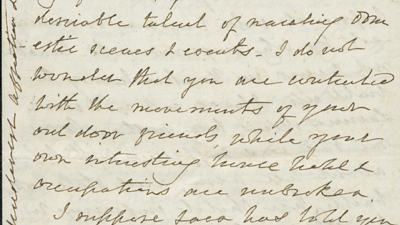 desirable talent of narrating dom
estic scenes & events. I do not
wonder that you are contented
with the movements of your
out door friends, while your
own interesting house hold &
occupations are unbroken.
I suppose has told you